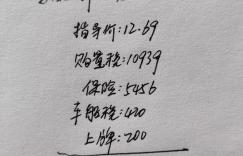 指导价:12.69
购置税:10939
保险:5456
车船税:420
上牌:200